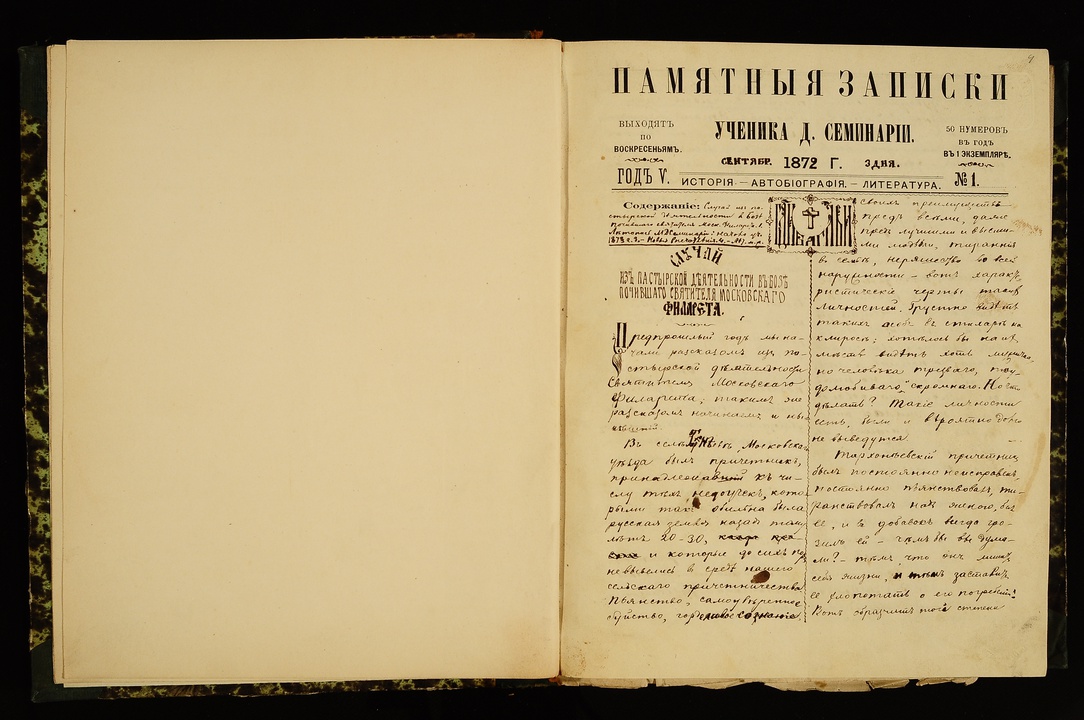 ПАМЯТНЫЯ ЗАПИСКИ
ВЫХОДЯТЪ
ПО
ВОСКРЕСЕНЬЯМЪ.
УЧЕНИКА Д. СЕМИНАРІИ.
50 НУМЕРОВЪ
ВЪ ГОДЪ
ВЪ 1 ЭКЗЕМПЛЯРѢ.
СЕНТЯБР. 1872 Г. 3 ДНЯ.
ГОДЪ V.
ИСТОРІЯ — АВТОБІОГРАФІЯ. — ЛИТЕРАТУРА.
№ 1.
Содержаніе: Случай из па-
стырской дѣятельности въ Бозѣ
почившаго святителя Моск.
СЛУЧАЙ
ИЗЪ ПАСТЫРСКОЙ ДѢЯТЕЛЬНОСТИ ВЪ БОЗѢ
ПОЧИВШАГО СВЯТИТЕЛЯ МОСКОВСКАГО
ФИЛАРЕТА.
Предпрошлый годъ мы на-
чали разсказомъ изъ па-
стырской дѣятельности
Святителя Московскаго
Филарета; такимъ же
разсказомъ начинаемъ и ны-
нѣшній.
Въ селѣ Московскаго
уѣзда былъ причетникъ,
принадлежавшій къ чи-
слу тѣхъ недоучекъ, кото-
рыми такъ обильна была
русская земля назадъ тому
лѣтъ 20-30, и которые до сихъ пор
невывелись в средѣ нашего
сельскаго причетничества.
Пьянство, самоувѣренное
сознаніе
своихъ преимуществъ
предъ всѣми, даже
предъ лучшими и высши-
ми людьми, тираннія
в семьѣ, неряшество во всей
наружности — вотъ харак-
ристическія черты такихъ
личностей. Грустно видѣть
такихъ особъ въ стихарѣ на
клиросѣ; хотѣлось бы на их
мѣстѣ видѣть хоть
но человѣка трезваго, тру-
долюбиваго, скромнаго. Но что
дѣлать? Такіе личности
есть, были и вѣроятно долго
не выведутся.
причетникъ
былъ постоянно неисправенъ,
постоянно пьянствовалъ, ти-
ранствовалъ надъ женою, билъ
ее, и въ добавокъ всегда гро-
зилъ ей — чѣмъ бы вы дума-
ли? — тѣмъ, что онъ лишитъ
себя жизни, и тѣмъ заставитъ
ее хлопотать о его погребеніи!
Вотъ образчикъ той степени